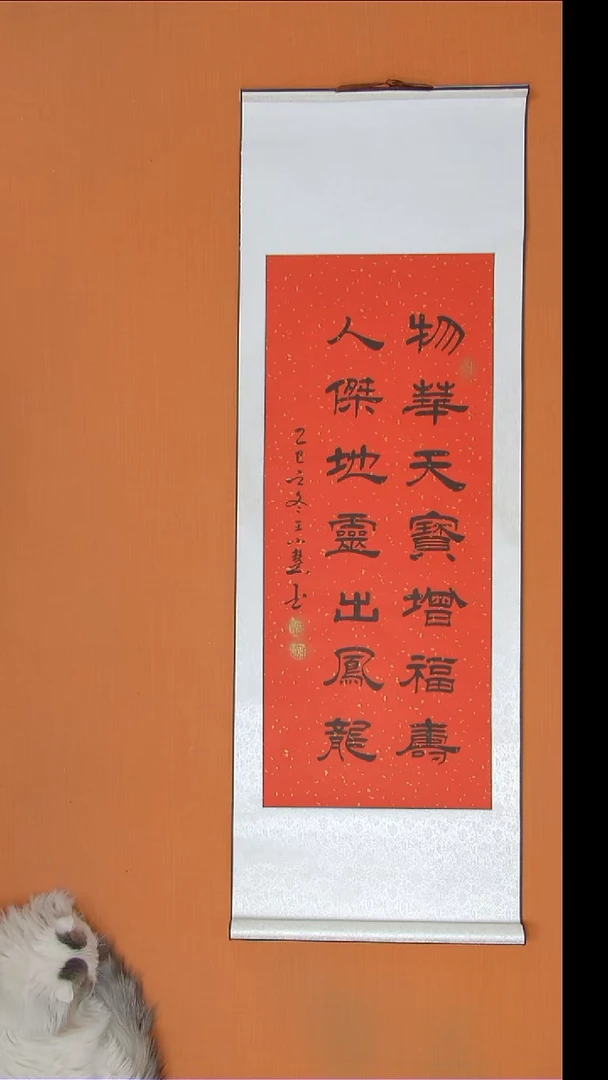 物華天寶增福壽
人傑地靈出鳳龍
乙巳立冬王小慧书